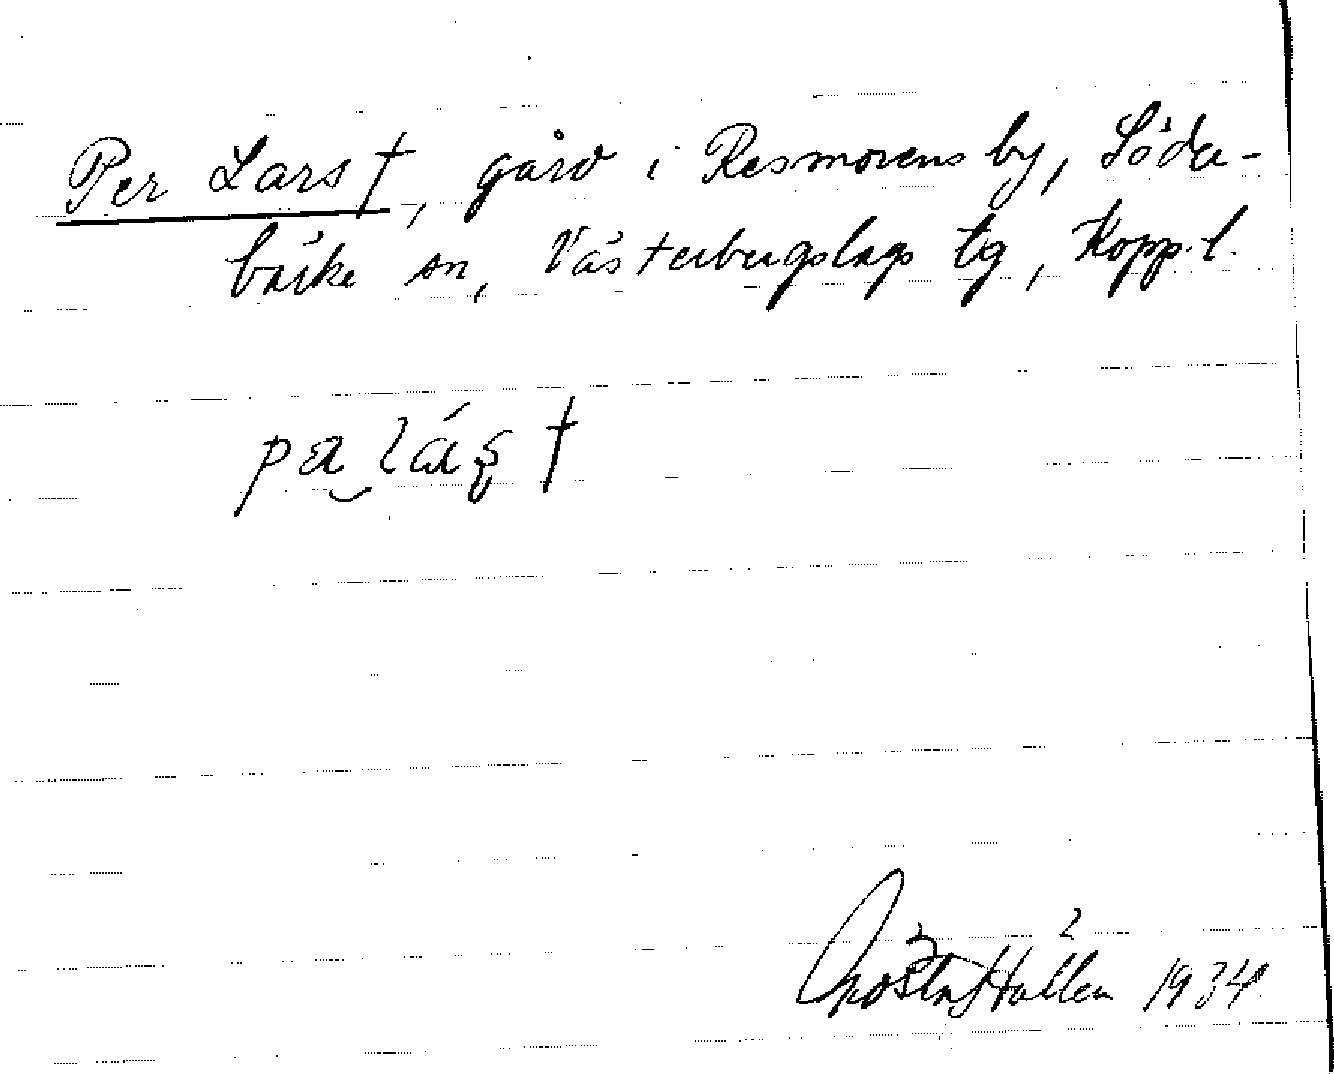 Per Lars †, gård i Resmorens by, Söder-
bärke sn, Västerbergslags tg, Kopp. l.
pɛr lás †
Gösta Hallén 1934.